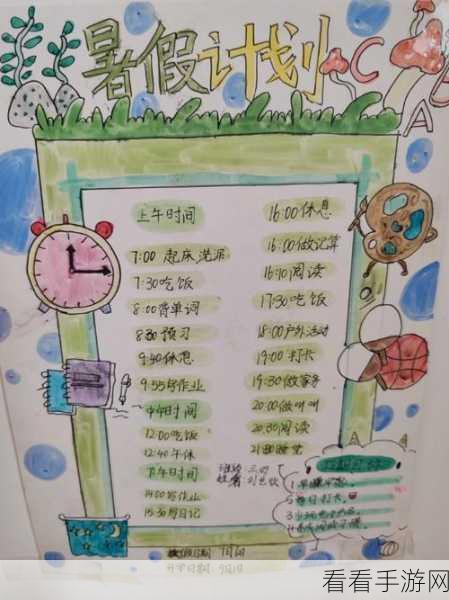 暑假计划
A
C
A
上午时间
7:00 起床洗漱
7:30吃饭
8:00背单词
8:30 预习
9:40休息
9:55写作业
中午时间
12:00吃饭
12:40午休
下午时间
14:00写作业
15:30写日记
16:00休息
16:00做计算
16:10阅读
17:30吃饭
18:00户外活动
19:00打卡
19:30做家务
20:00做叭叭
20:30阅读
21:30睡觉
看看手游网